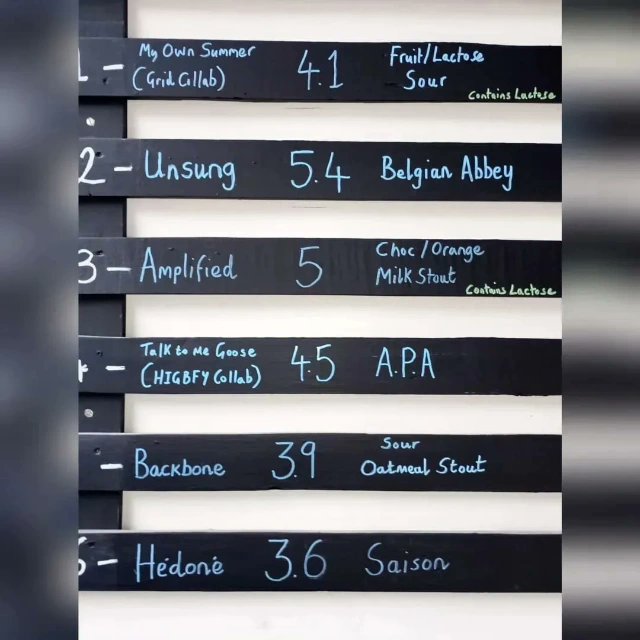 1 - My Own Summer (Grid Collab) 4.1 Fruit/Lactose Sour Contains Lactose
2 - Unsung 5.4 Belgian Abbey
3 - Amplified 5 Choc/Orange Milk Stout Contains Lactose
- Talk to Me Goose (HIGBFY Collab) 4.5 A.P.A
- Backbone 3.9 Sour Oatmeal Stout
- Hédoné 3.6 Saison